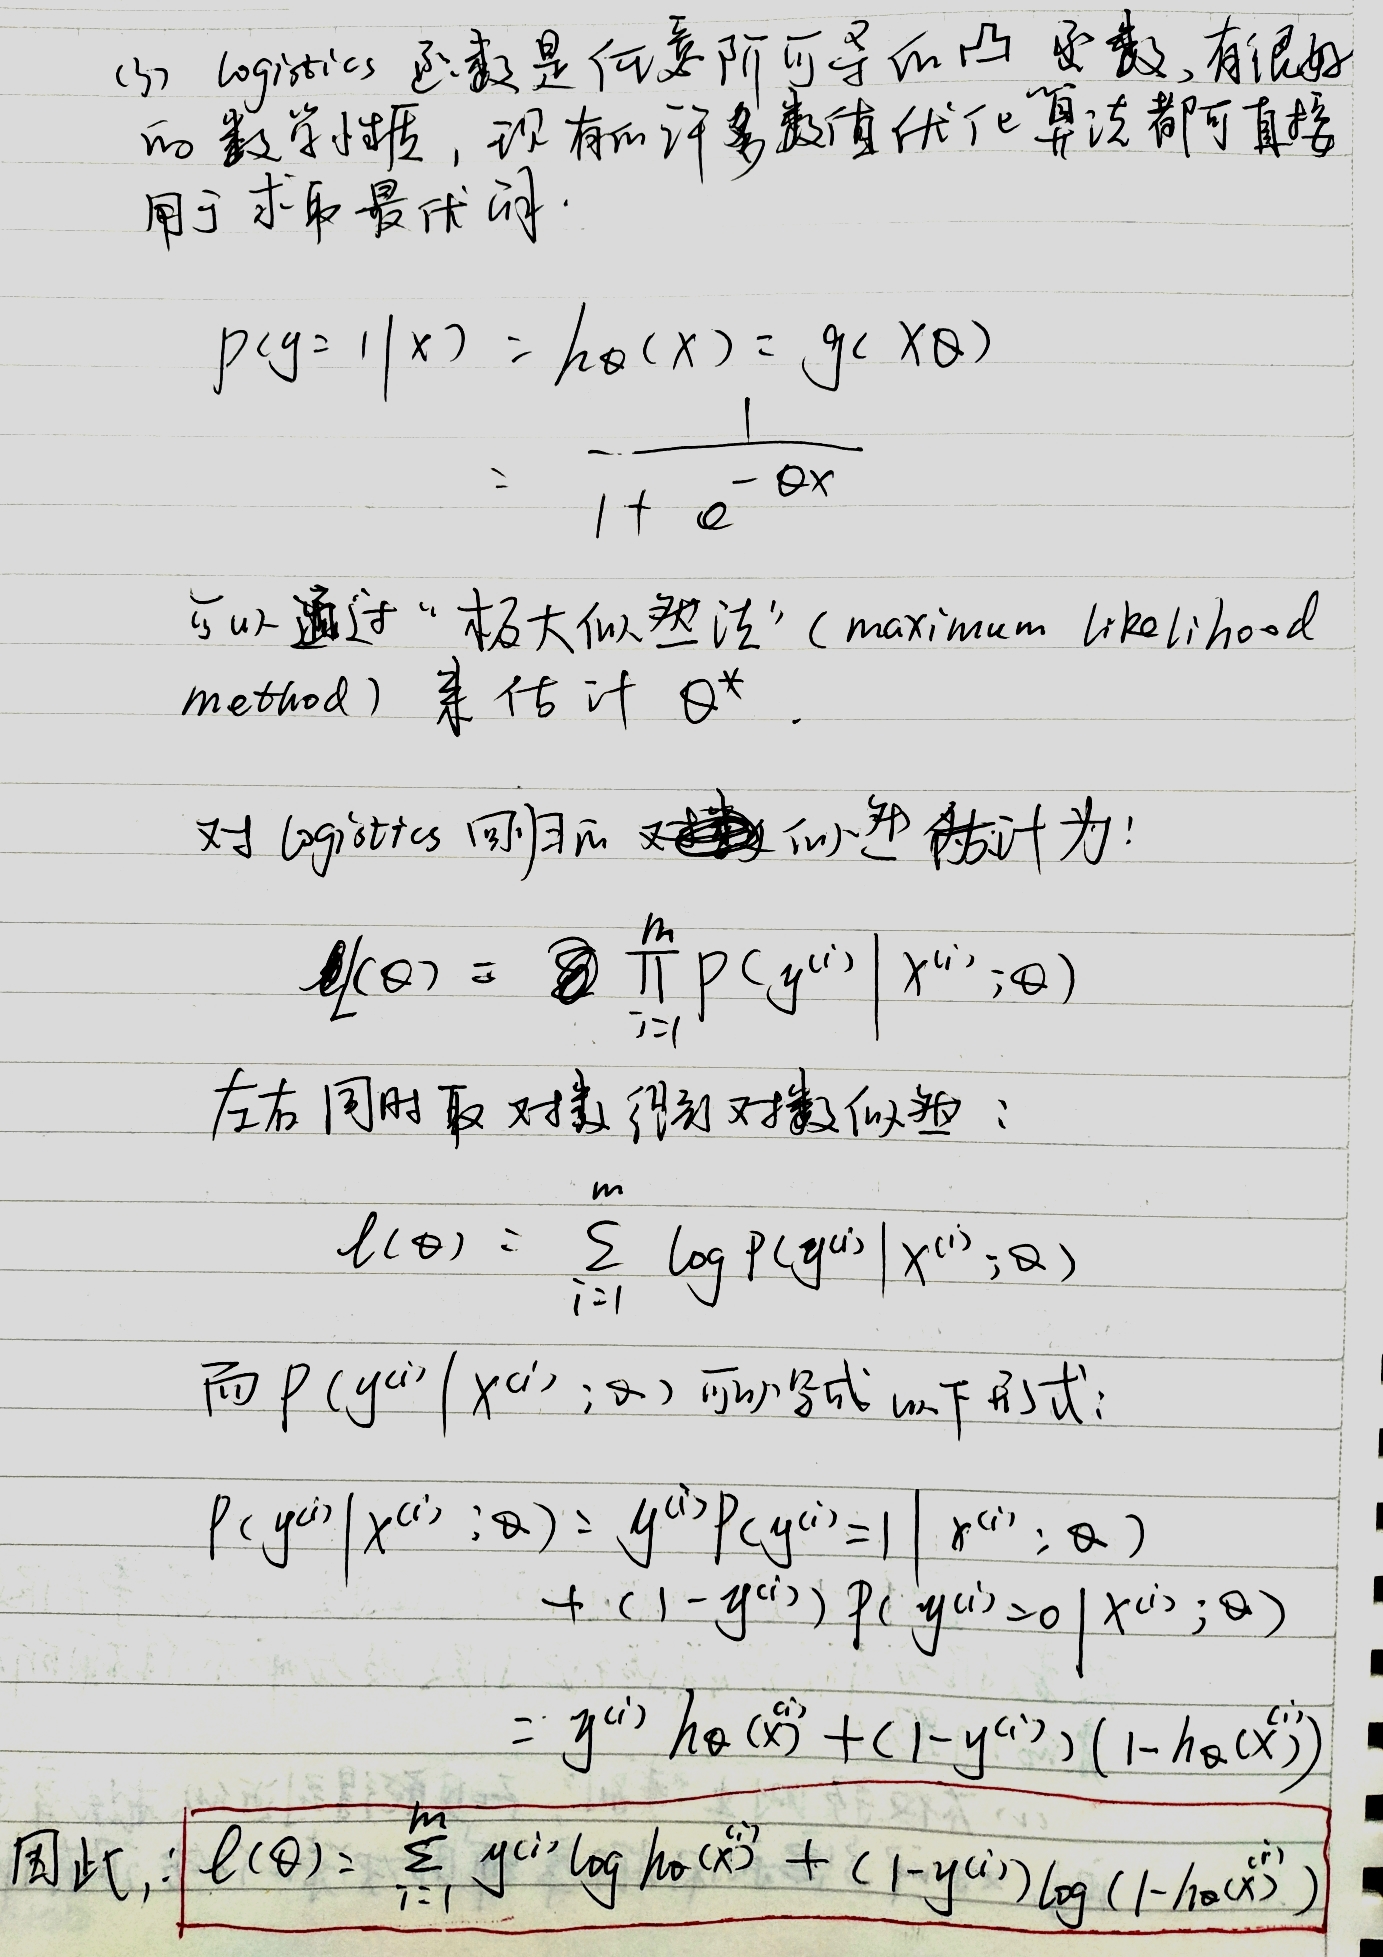 (3) logistics 函数是任意阶可导的凸函数,有很好
的数学性质,现有的许多数值优化算法都可直接
用于求取最优解.
p(y=1|x) = hθ(x) = g(xθ)
= 1 / (1 + e^{-θx})
可以通过“极大似然法”(maximum likelihood
method)来估计 θ*.
对 logistics 回归的似然估计为:
L(θ) = ∏_{i=1}^{m} P(y^{(i)} | x^{(i)};θ)
左右同时取对数得到对数似然:
l(θ) = ∑_{i=1}^{m} log P(y^{(i)} | x^{(i)};θ)
而 P(y^{(i)} | x^{(i)};θ) 可以写成以下形式:
P(y^{(i)} | x^{(i)};θ) = y^{(i)} P(y^{(i)}=1 | x^{(i)};θ)
+ (1-y^{(i)}) P(y^{(i)}=0 | x^{(i)};θ)
= y^{(i)} hθ(x^{(i)}) + (1-y^{(i)})(1-hθ(x^{(i)}))
因此,: l(θ) = ∑_{i=1}^{m} y^{(i)} log hθ(x^{(i)}) + (1-y^{(i)}) log(1-hθ(x^{(i)}))